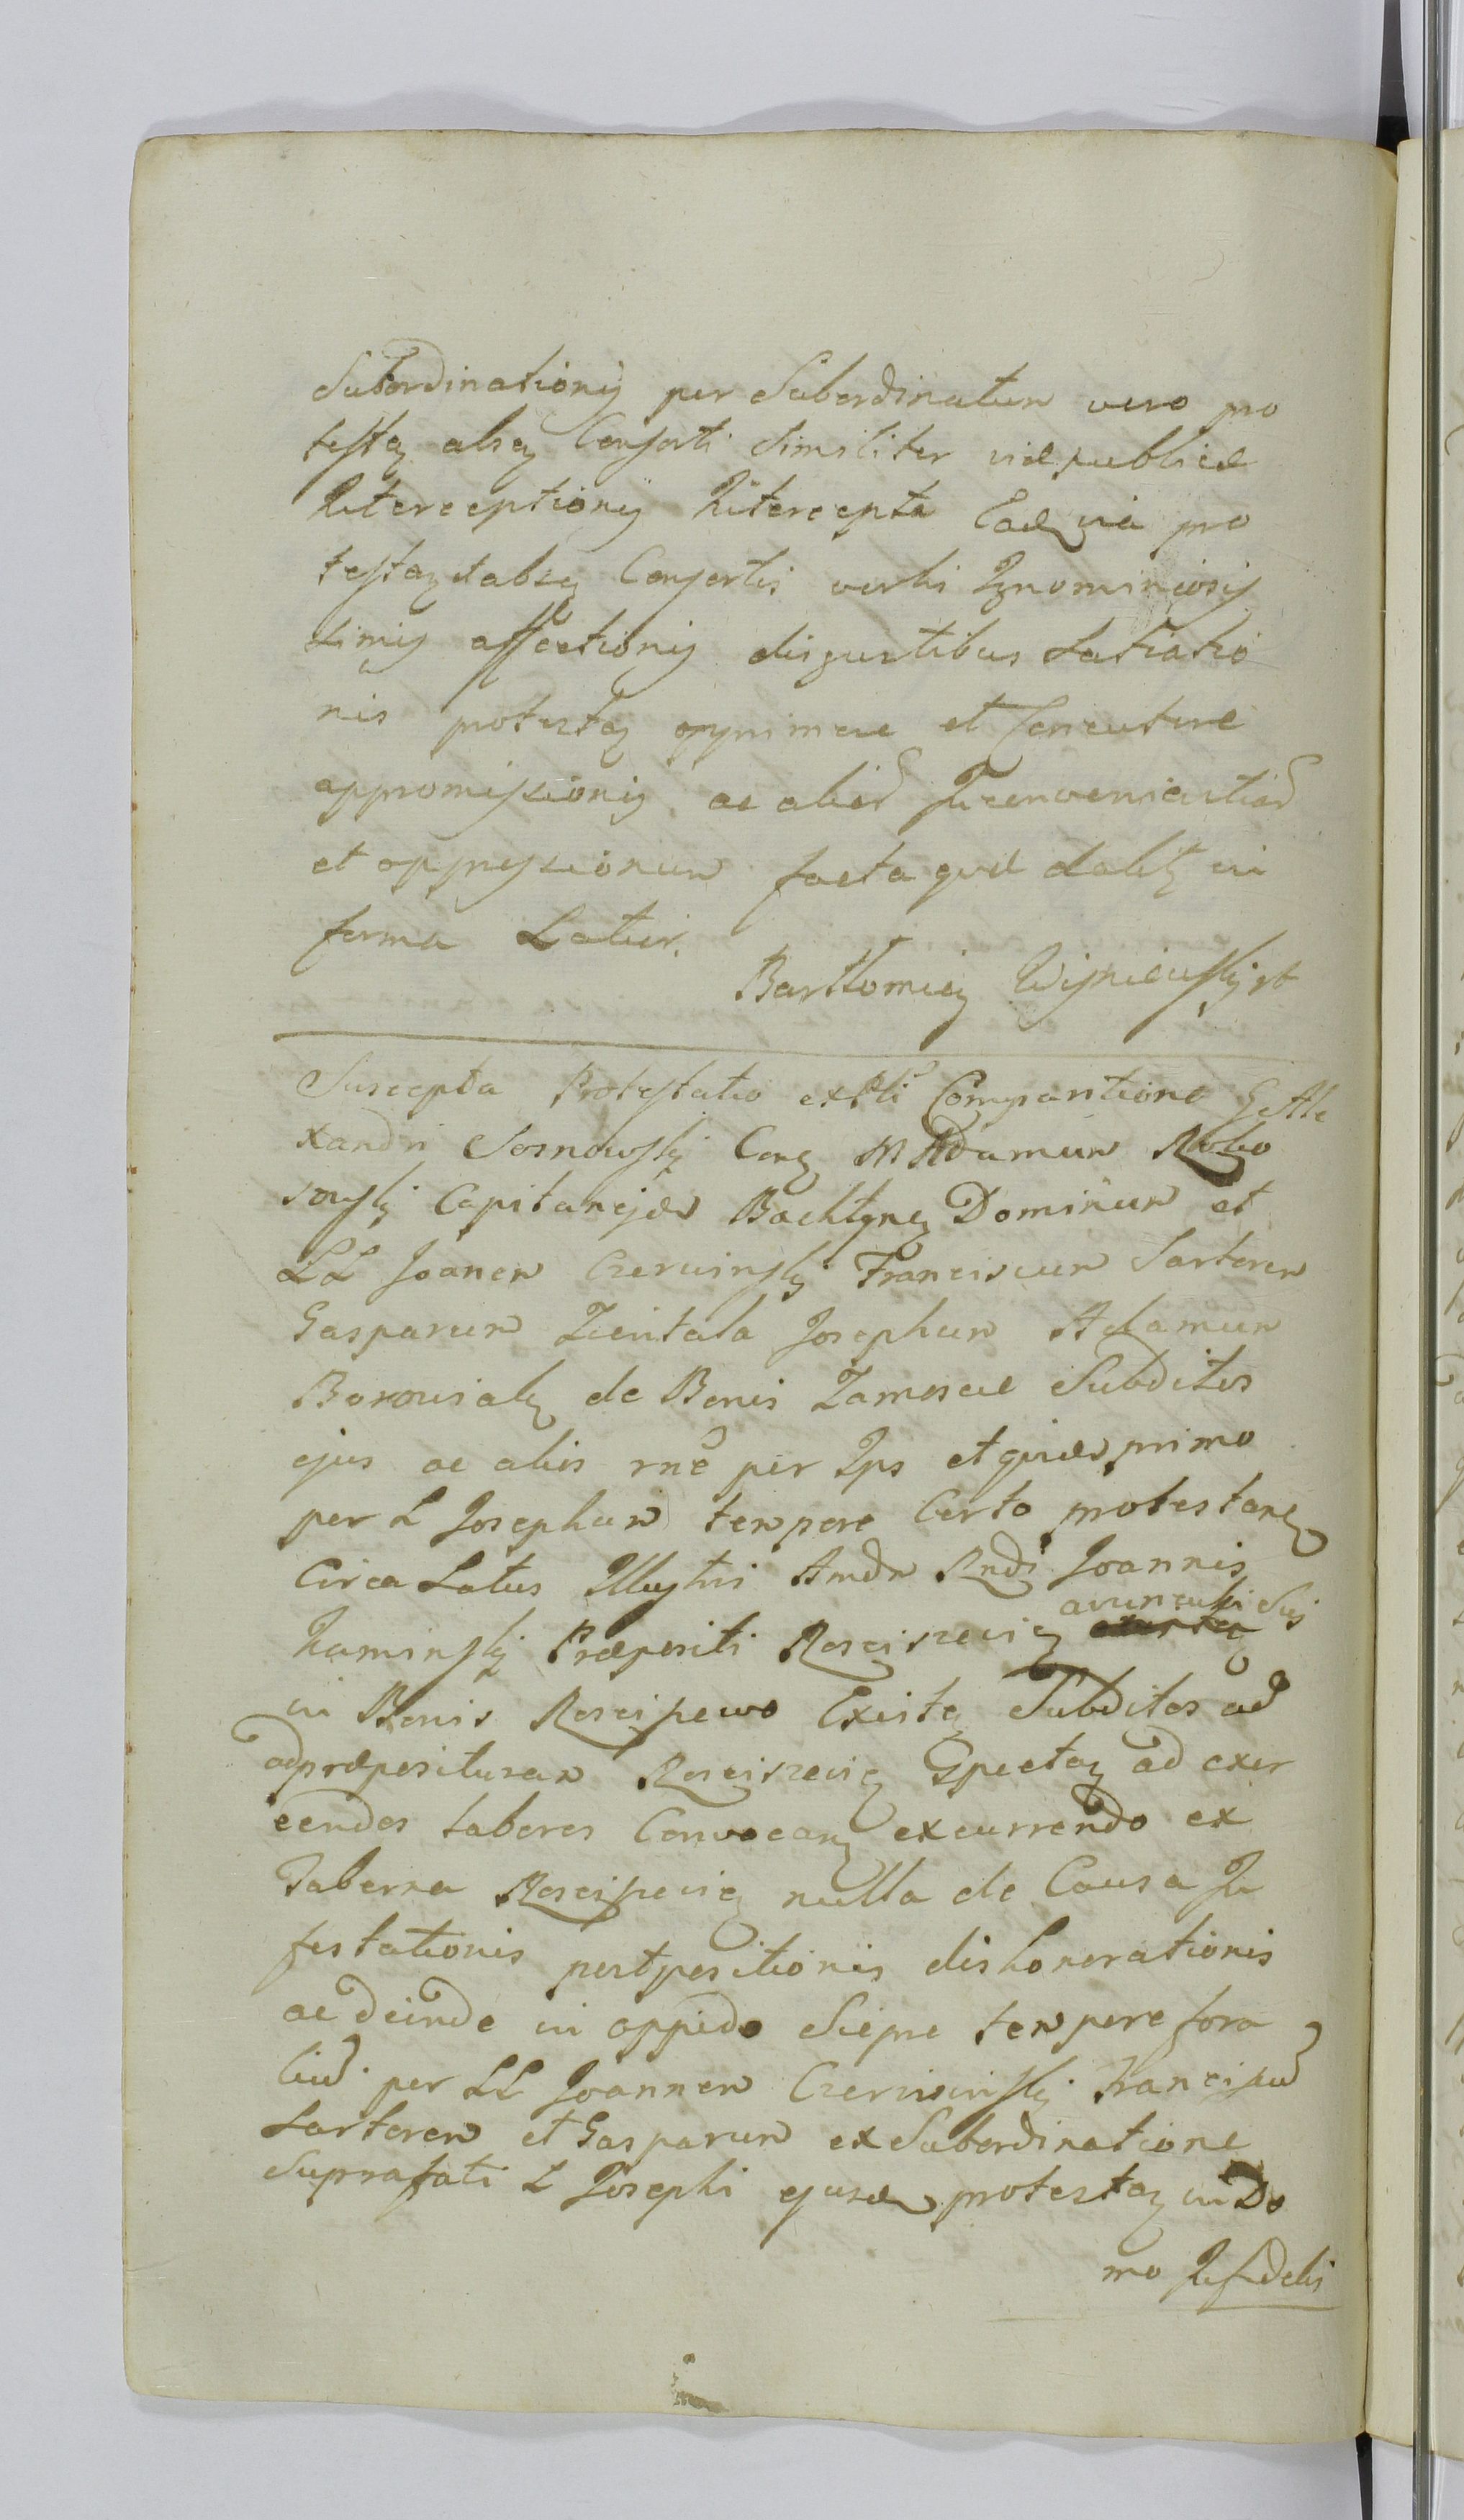 Subordinationis per Subordinatum vero pro
testaz absq Consorti similiter viæ publicæ
Interceptionis Intercepta Eadq via pro
testaz et absq Consortis verbis Ignominiosis
simis affectionis disgustibus Satiatio
nis protestaz opprimere et Concutere
appromissionis ac alior Inconvenientiar
et oppressionum facta quæ dabitz in
forma Latior.
Bartłomiej Wisniewski
Suscepta Protestatio ex Comparitione G Ale
xandri Sosnowskj Conz M Adamum
Capitanejdem Dominum et
LL Joanem Czerwinskj Franciscum Sartorem
Gasparum Zientala Josephum Adamum
de Bonis Zamosce Subditos
ejus ac aliis rne per Ips et quidem primo
per L Josephum tempore Certo protestanz
Circa Latus Illustri Amdm Rndi Joannis
Kaminskj Præpositi Rosciszeviez avunculi Sui
in Bonis Rosciszewo Existez Subditos ad
ad præposituram Rosciszeviez Spectaz ad exer
cendos Labores Convocanz excurrendo ex
Taberna Rosciszeviez nulla de Causa In
festationis postpositionis dishonorationis
ac deinde in oppido Sierpe tempore fora
liu per LL Joannem Czerwinskj Franciscum
Sartorem et Gasparum ex Subordinatione
Suprafati L Josephi ejusdem protestaz in Do
mo Infidelis